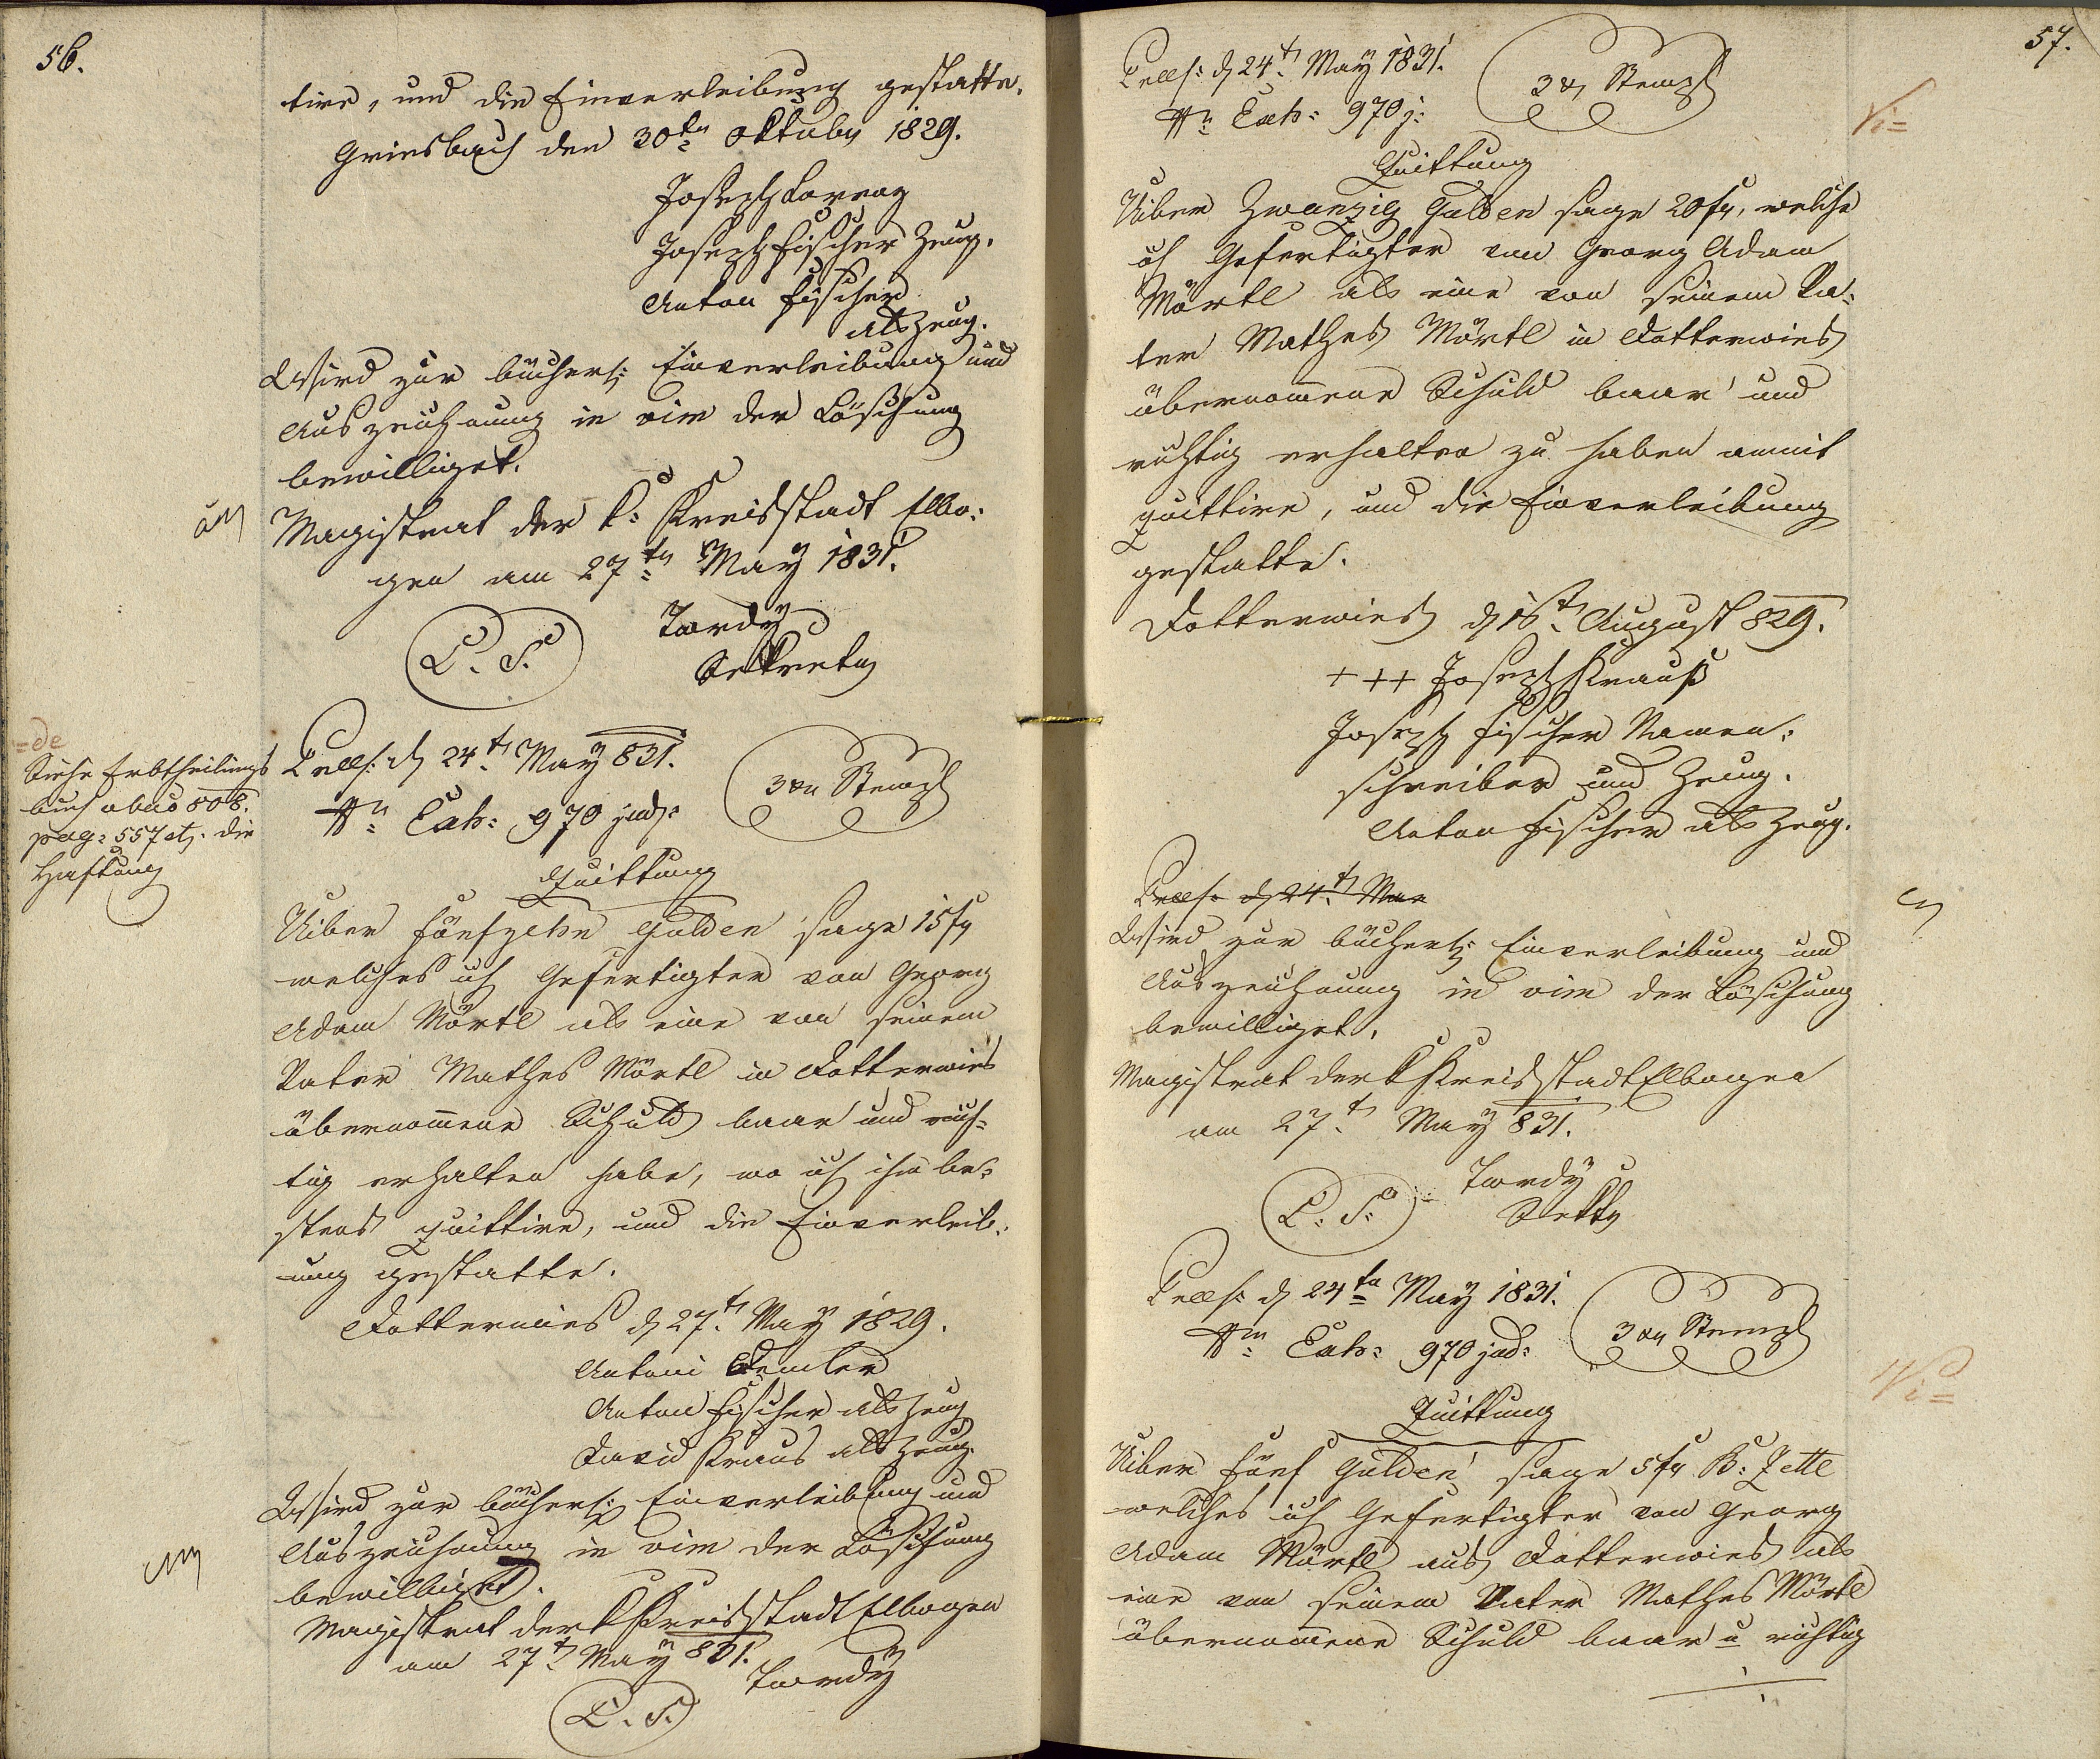 56.
tire, und die Einverleibung gestatte.
Griesbach den 30ten Oktober 1829.
Joseph Lorenz
Joseph Fischer Zeug.
Anton Fischer
als Zeug.
Wird zur bücherl: Einverleibung und
Auszeichnung in vim der Löschung
bewilliget.
Magistrat der k: Kreisstadt Elbo:
gen am 27ten May 1831.
Tordy
L. S.
Sekretär
=de
Siehe Erbtheilungs
buch
pag: 557 die
Haftung
d 24t May 831.
3 xr Stempl
Nr Exh: 970 jud:
Quittung
Uiber fünfzehn Gulden sage 15 fr
welches ich Gefertigter von Georg
Adam Mörtl als eine von seinem
Vater Mathes Mörtl in Dotterwies
übernommene Schuld baar und rich=
tig erhalten habe, wo ich ihn be=
stens quittire, und die Einverleib=
ung gestatte.
Dotterwies d 27t May 1829.
Antoni
Anton Fischer als Zeug
David Kraus als Zeug.
Wird zur bücherl: Einverleibung und
Auszeichnung in vim der Löschung
bewilliget.
Magistrat der k Kreisstadt Elbogen
am 27t May 831.
Tordy
L. S.
57.
d 24t May 1831.
3 xr Stempl
Nr Exh: 970 j:
Quittung
Uiber Zwanzig Gulden sage 20 fr, welche
ich Gefertigter von Georg Adam
Mörtl als eine von seinem Va=
ter Mathes Mörtl in Dotterwies
übernommene Schuld baar und
richtig erhalten zu haben anmit
quittire, und die Einverleibung
gestatte.
Dotterwies d 16t August 829.
+++ Joseph Krauß
Joseph Fischer Namen=
schreiber und Zeug.
Anton Fischer als Zeug.
d 24t Ma
Wird zur bücherl: Einverleibung und
Auszeichnung in vim der Löschung
bewilliget.
Magistrat der k Kreisstadt Elbogen
am 27t May 831.
Tordy
L. S.
Sektr
d 24ten May 1831.
3 xr Stempl
Nr Exh: 970 jud:
Quittung
Uiber fünf Gulden sage 5 fr B: Zettl
welches ich Gefertigter von Georg
Adam Mörtl aus Dotterwies als
eine von seinem Vater Mathes Mörtl
übernommene Schuld baar u richtig